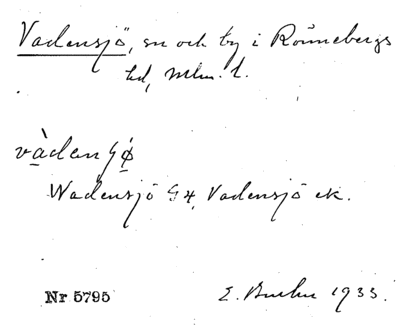 Vadensjö, sn och by i Rönnebergs
hd, Mlm. l.
vàdenʃø̀
Wadensjö G4, Vadensjö ek.
Nr 5795 E. 1933.